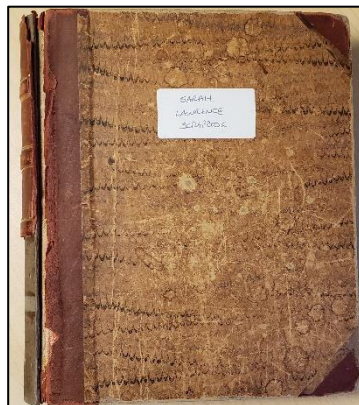 SARAH
LAWRENCE
SCRAPBOOK